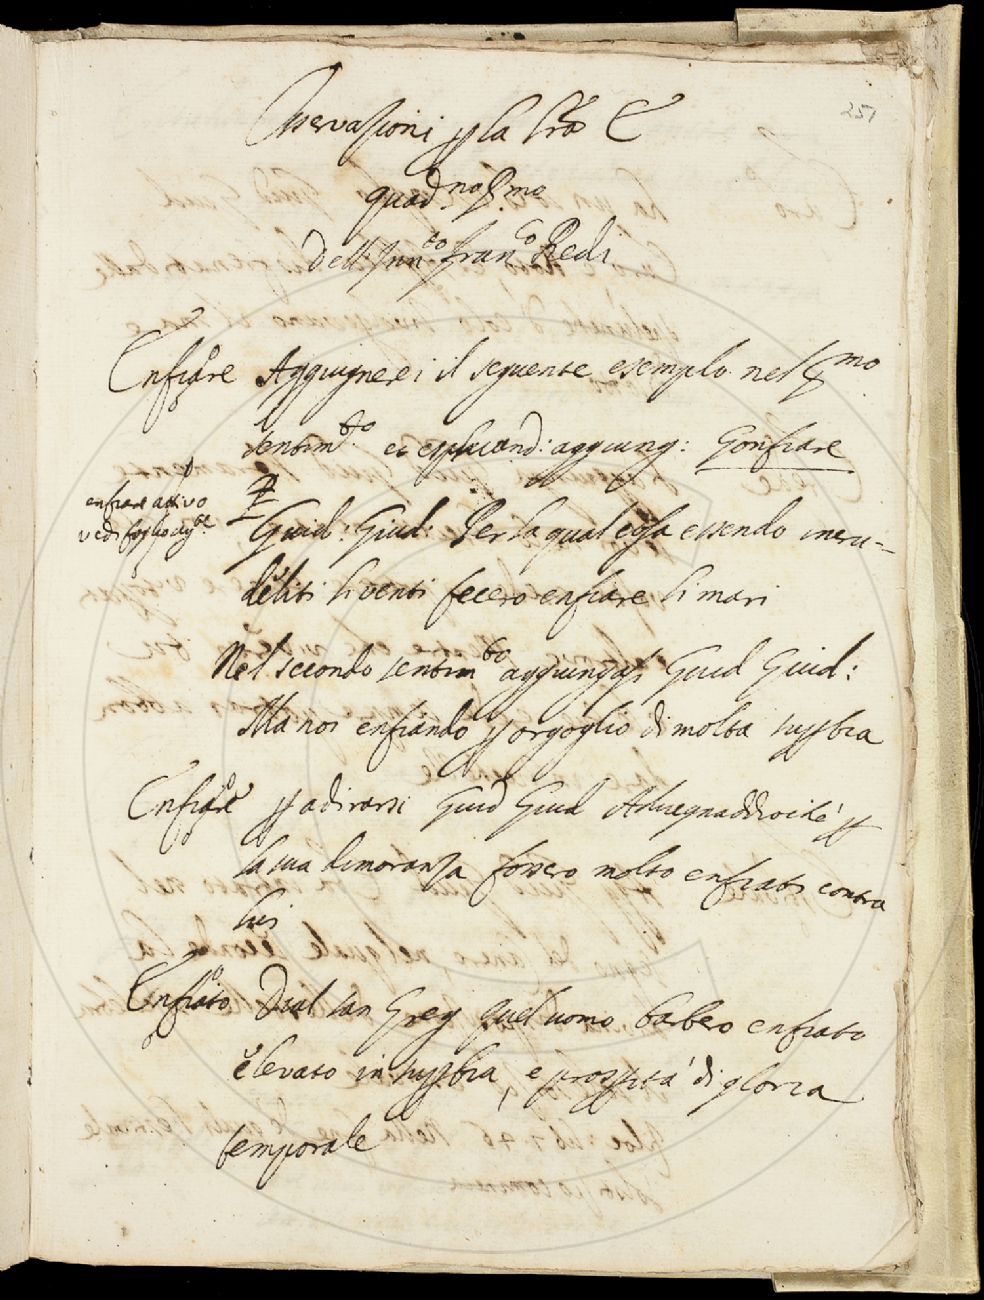 251
Osservazioni p la lrã E
quad.no p.mo
Dell'Inn.to Fran.co Redi
Enfiare Aggiugnerei il seguente esempio nel p.mo
sentim.to et esplicand: aggiung: Gonfiare
enfiare attivo
vedi foglio
Guid: Giud: Per la qual cosa essendo incru=
deliti li venti fecero enfiare li mari
Nel secondo sentim.to aggiungasi Guid Giud:
Ma noi enfiando p orgoglio di molta supbia
Enfiare p adirarsi Guid Giud Advegnaddiochè p
la sua dimoranza fossero molto enfiati contra
lui
Enfiato Dial san Greg quel uomo barbero enfiato
elevato in supbia, e prospità di gloria
temporale